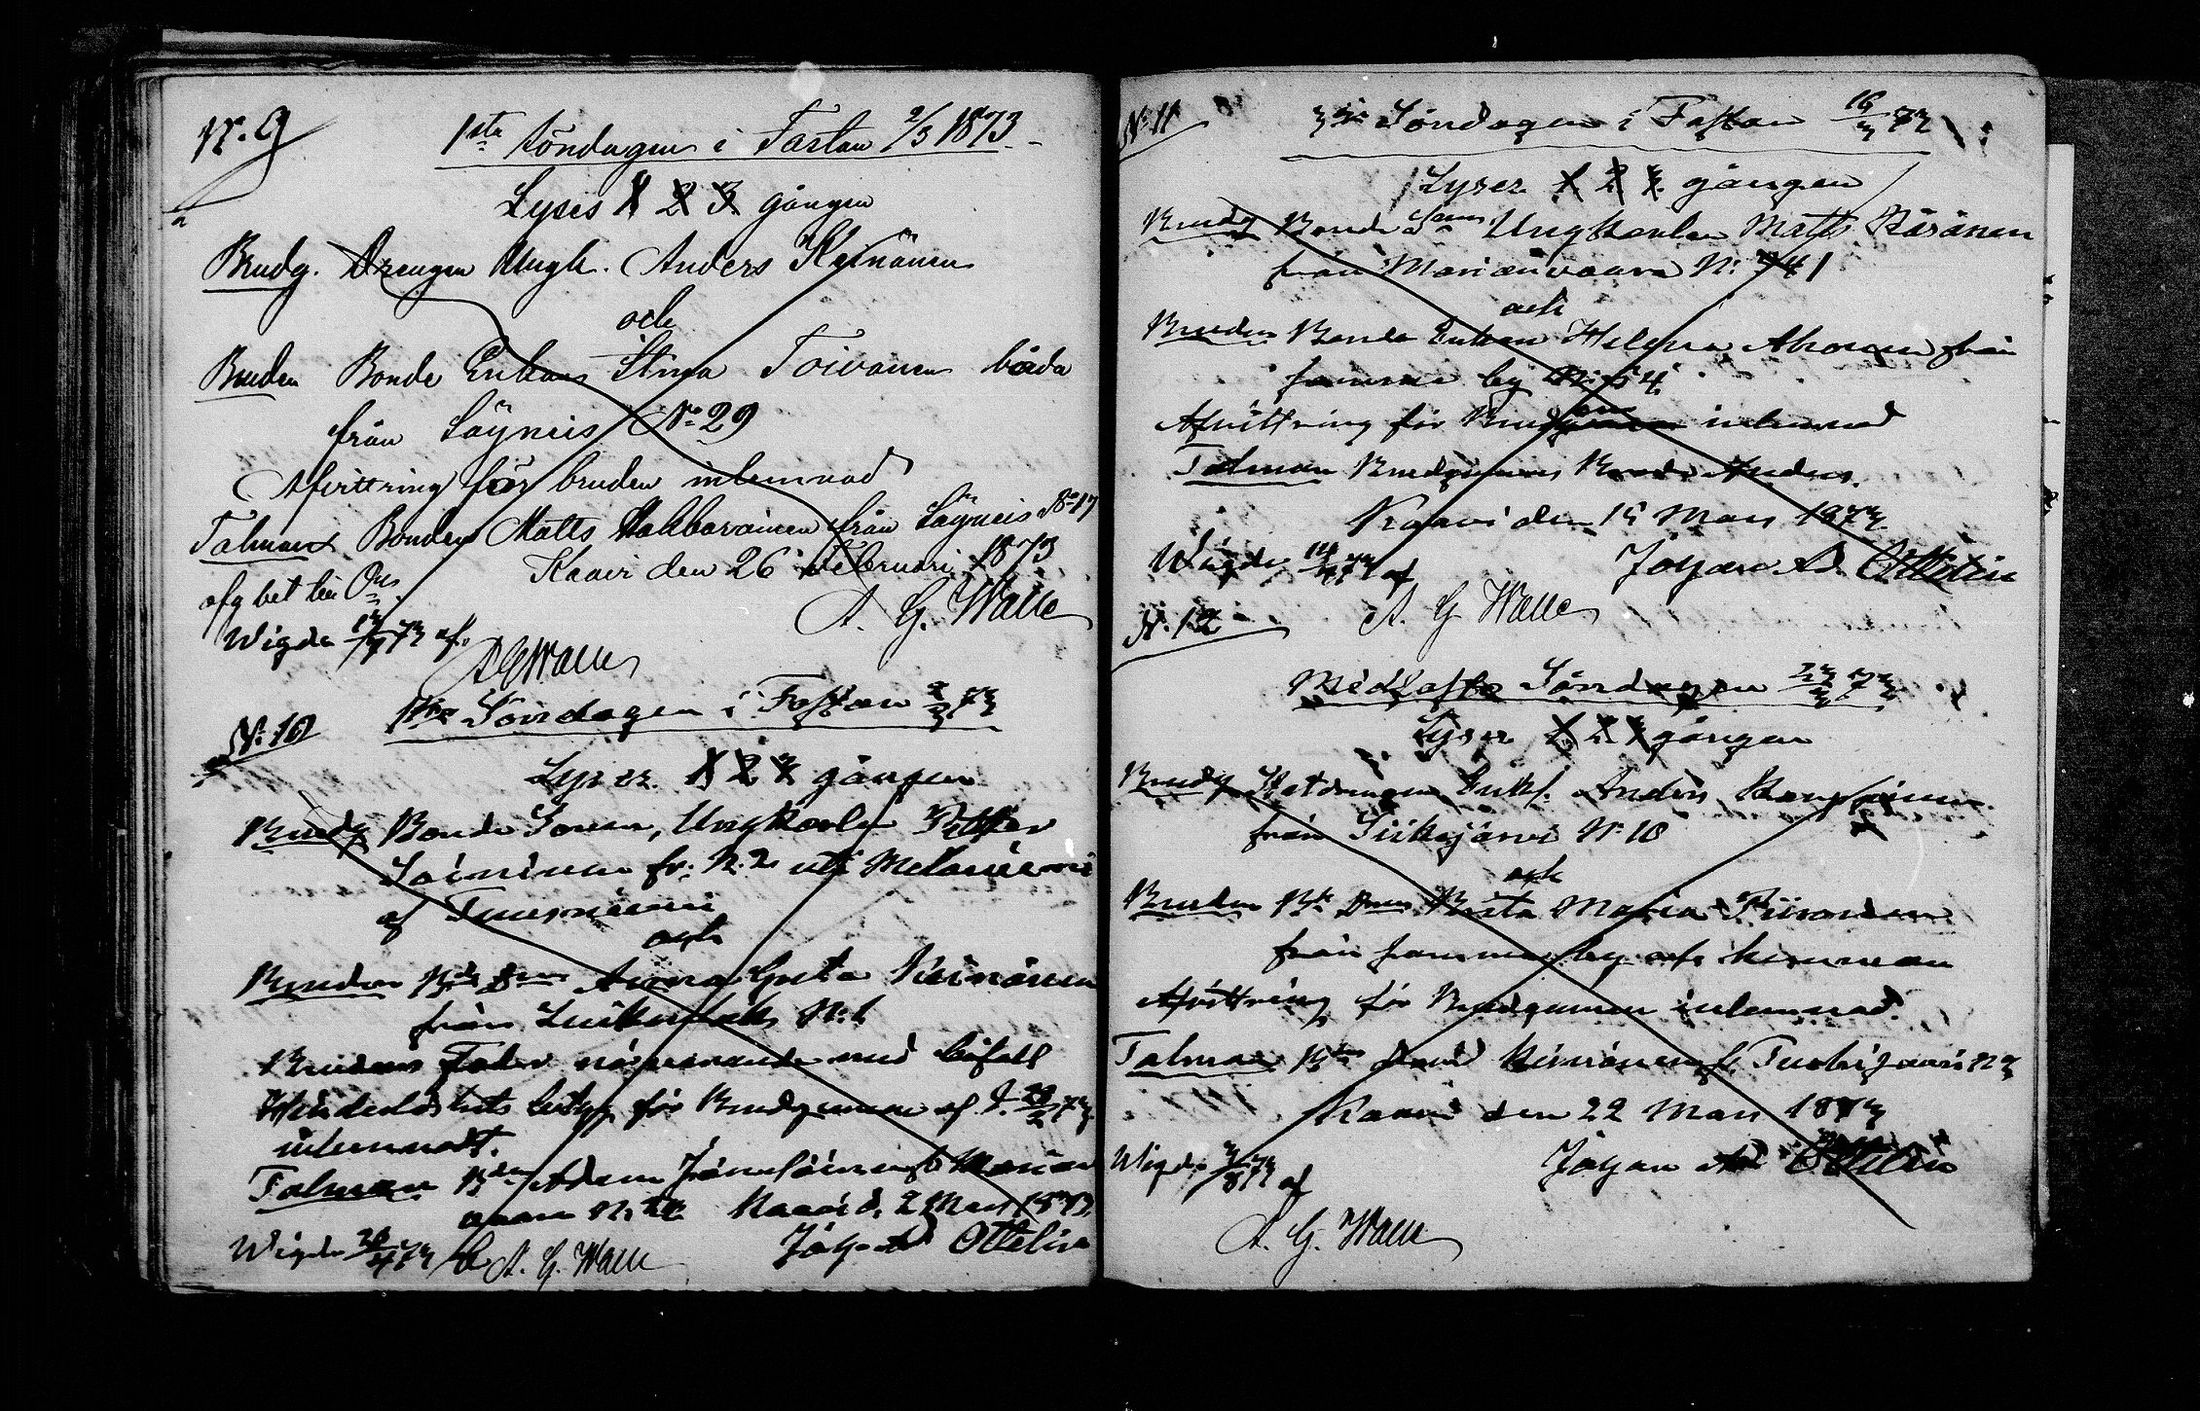 N:o 9
1sta Söndagen i Fastan 2/3 1873.
Lyses 1 2 3 gången
Brudg. Drengen Ungk. Anders Keinänen
och
Bruden Bonde Enkan Stina Toivanen båda
från Säyneis No 29
Afvittring för bruden inlemnad
Talman Bonden Matts från Säyneis No 17
Kaavi den 26 Februari 1873.
A. G. Walle
Wigde 73 af
A G Walle
No 10
1sta Söndagen i Fastan 2/3 73
Lyser 1 2 3 gången
Brudg Bonde Sonen, Ungkarln Petter
Soininen fr. N: 2 uti Melaniemi
af Tuusniemi
och
Bruden Anna Greta Keinänen
från N: 1
Brudens Fader närvarande med bifall
Hinderslöshets betyg för Brudgummen af
inlemnadt.
Talman Adam
Kaavi d. 2 Mars 1873
Joh. Ad. Ottelin
Wigde 73 A. G. Walle
No 11
3dje Söndagen i Fastan 16/3 73
Lyser 1 2 3 gången
Brudg Bonde Sonen Ungkarlen Matts Räsänen
från Marianvaara N: 41
och
Bruden Bonde Enkan Helena Ahonen från
samma by N: 4
Afvittring för inlemnad
Talman Brudgummens Anders.
Kaavi den 15 Mars 1873
Johan Ad. Ottelin
Wigde 73 af
A. G Walle
N. 12
Midfasto Söndagen 23/3 73
Lyser 1 2 3 gången
Brudg Enkl. Anders
från Siikajärvi N: 10
och
Bruden Brita Maria
från samma by och hemman
Afvittring för Brudgummen inlemnad.
Talman Keinänen fr.
Kaavi den 22 Mars 1873
Johan Ad Ottelin
Wigde 73 af
A. G. Walle